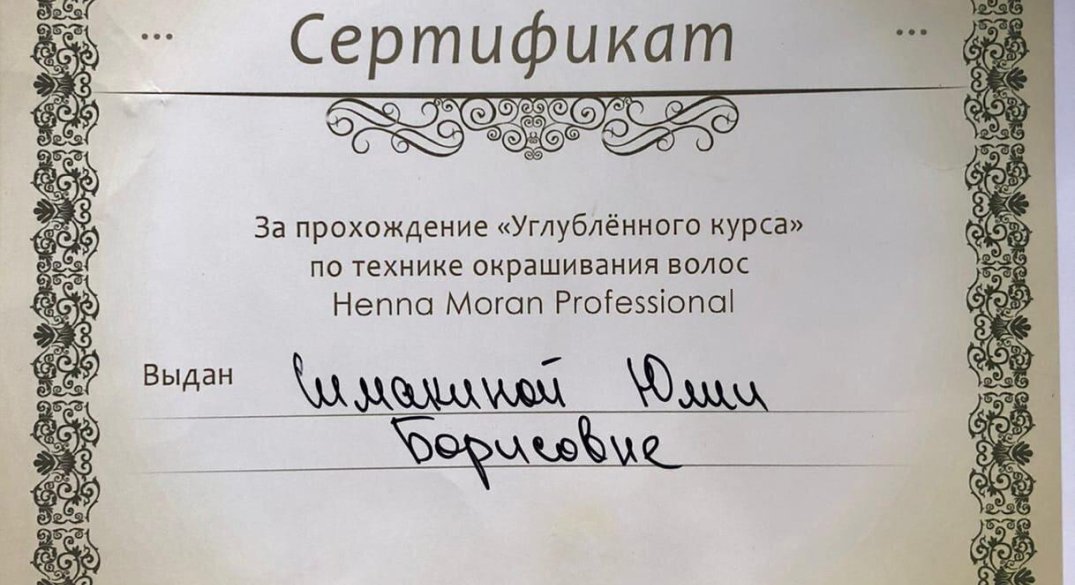 Сертификат
За прохождение «Углублённого курса»
по технике окрашивания волос
Henna Moran Professional
Выдан Симакиной Юлии
Борисовне